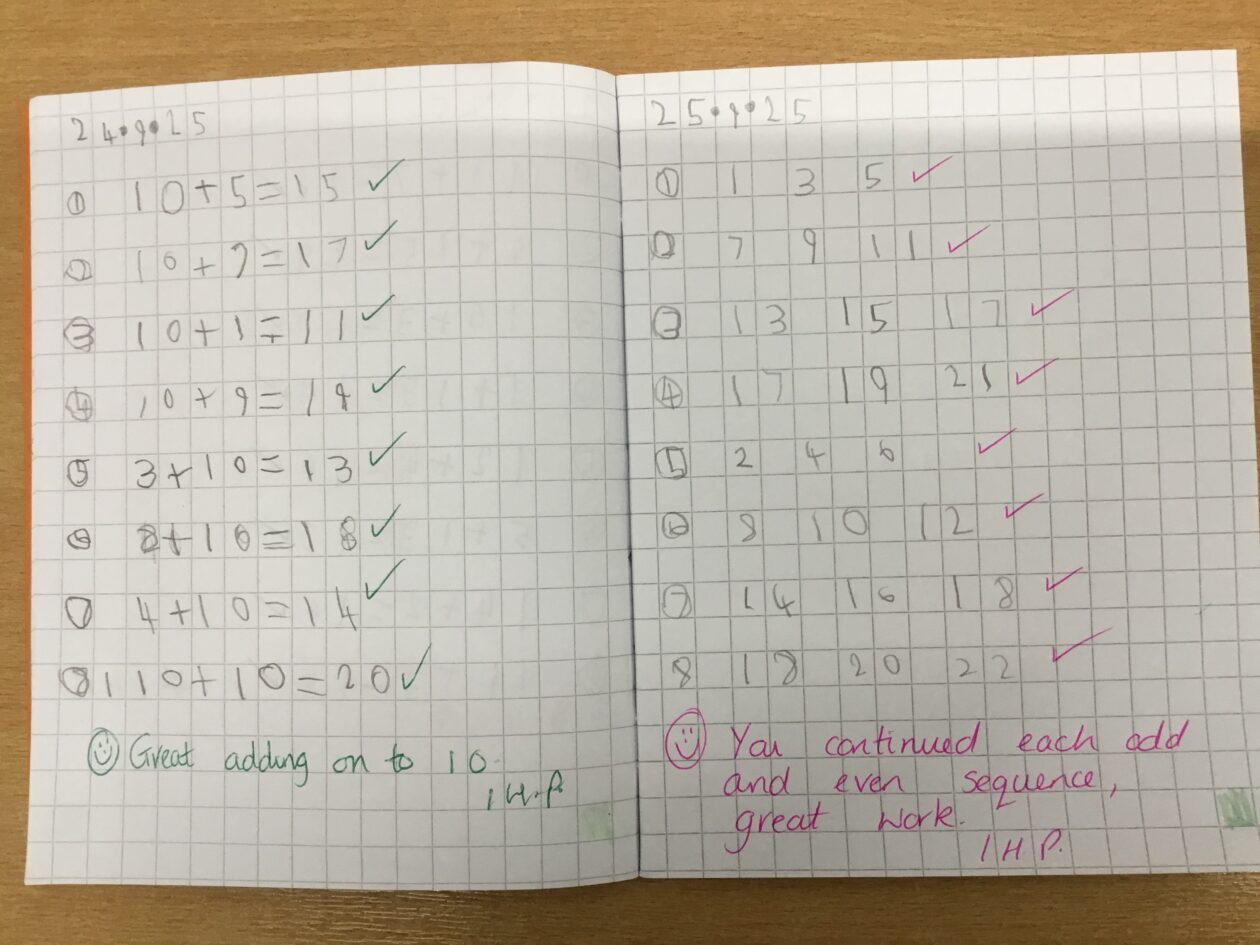 24.9.25
① 10+5=15 ✓
② 10+7=17 ✓
③ 10+1=11 ✓
④ 10+9=19 ✓
⑤ 3+10=13 ✓
⑥ 8+10=18 ✓
⑦ 4+10=14 ✓
⑧ 10+10=20 ✓
Great adding on to 10.
1 H.P
25.9.25
① 1 3 5 ✓
② 7 9 11 ✓
③ 13 15 17 ✓
④ 17 19 21 ✓
⑤ 2 4 6 ✓
⑥ 8 10 12 ✓
⑦ 14 16 18 ✓
8 18 20 22 ✓
You continued each odd
and even sequence,
great work.
1 H P.